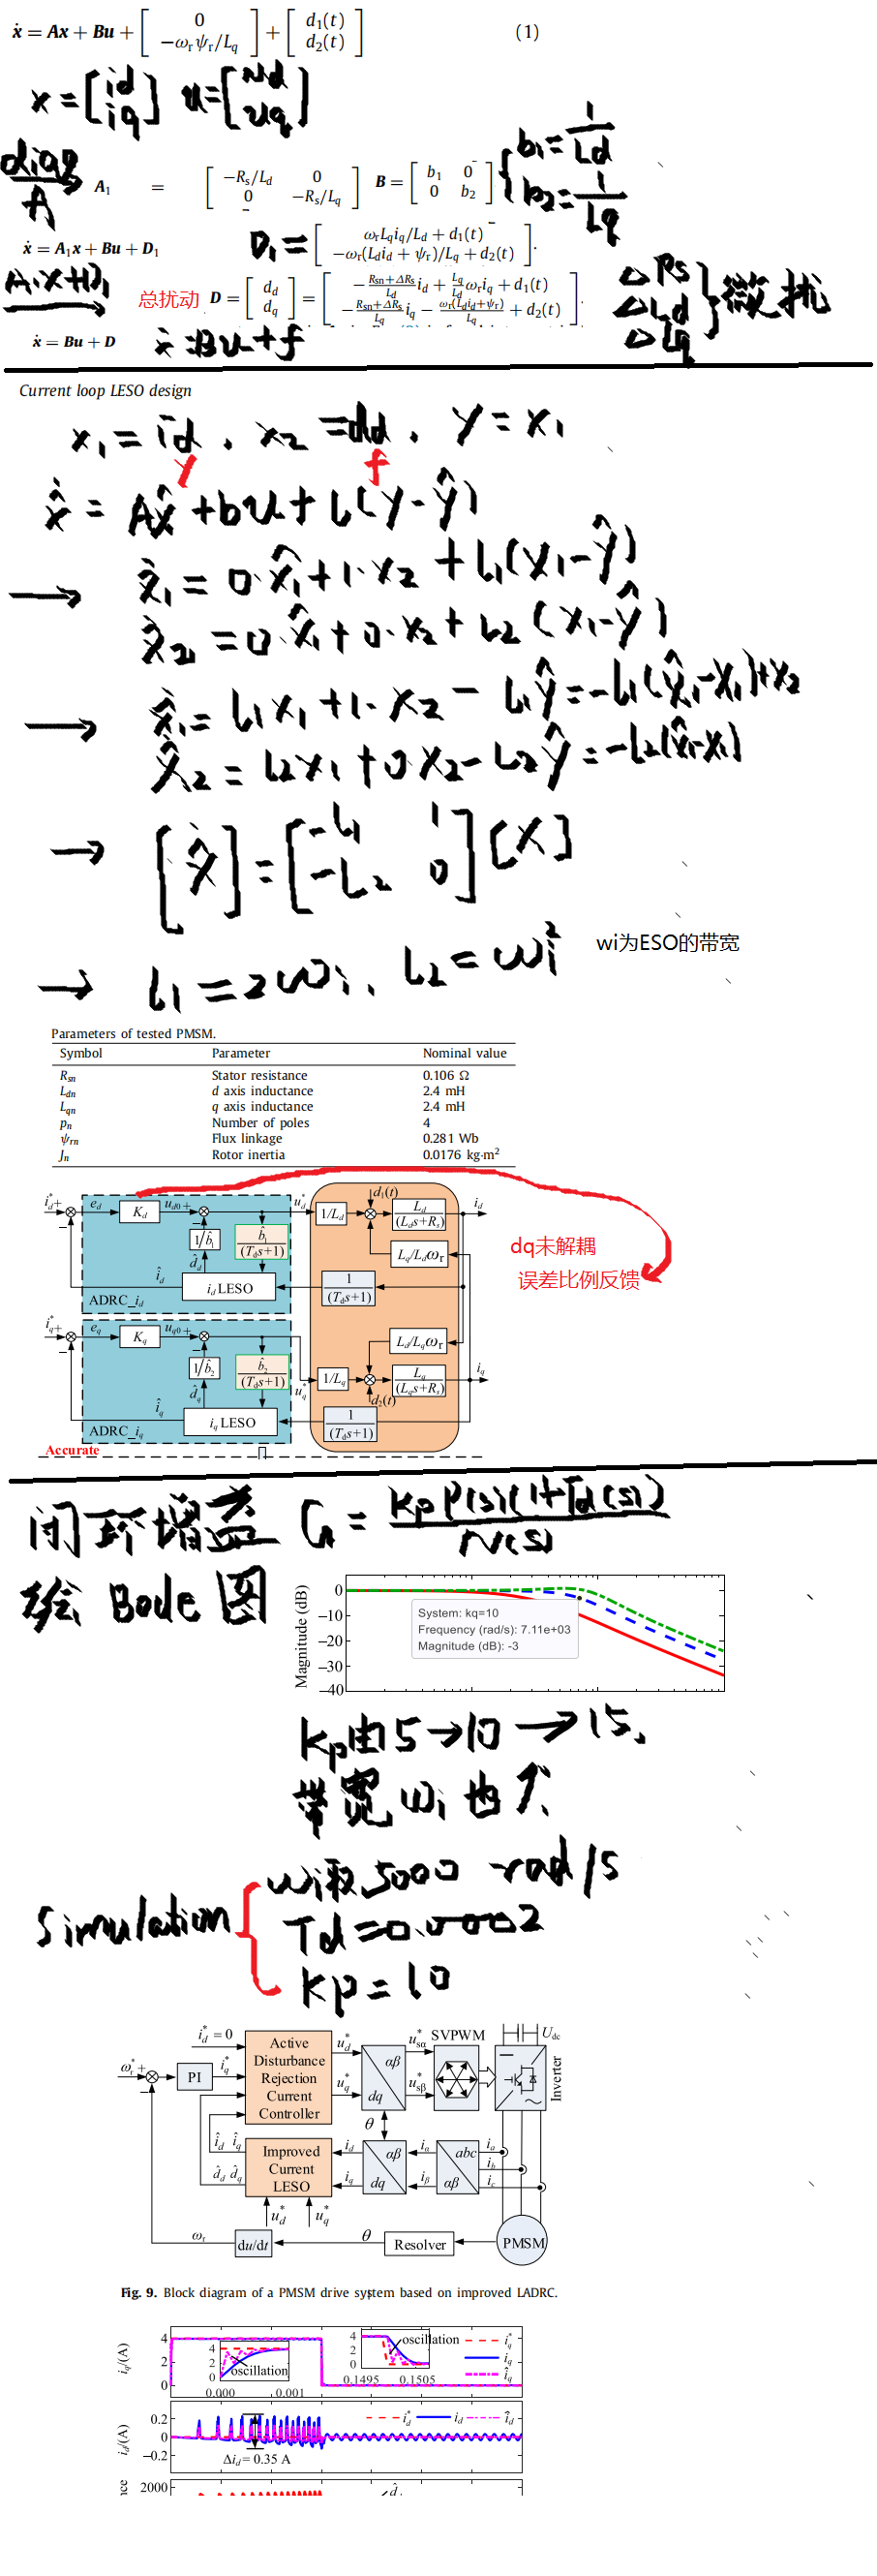 ẋ = Ax + Bu + [ 0 ; −ωrψr/Lq ] + [ d1(t) ; d2(t) ] (1)
x = [ id ; iq ] u = [ ud ; uq ]
diag A A1 = [ −Rs/Ld 0 ; 0 −Rs/Lq ] B = [ b1 0 ; 0 b2 ] { b1 = 1/Ld b2 = 1/Lq
ẋ = A1x + Bu + D1 D1 = [ ωrLqiq/Ld + d1(t) ; −ωr(Ldid + ψr)/Lq + d2(t) ].
A1X+D1 总扰动 D = [ dd ; dq ] = [ −(Rsn+ΔRs)/Ld id + Lq/Ld ωriq + d1(t) ; −(Rsn+ΔRs)/Lq iq − ωr(Ldid+ψr)/Lq + d2(t) ]. ΔRs ΔLd ΔLq } 微扰
ẋ = Bu + D ẋ = Bu + f
Current loop LESO design
x1 = id , x2 = dd , y = x1
y f
x̂̇ = Ax̂ + bu + L(y−ŷ)
→ x̂̇1 = 0·x̂1 + 1·x2 + L1(x1−ŷ)
x̂̇2 = 0·x̂1 + 0·x2 + L2(x1−ŷ)
→ x̂̇1 = L1x1 + 1·x2 − L1ŷ = −L1(x̂1−x1)+x2
x̂̇2 = L2x1 + 0x2 − L2ŷ = −L2(x̂1−x1)
→ [x̂̇] = [ −L1 1 ; −L2 0 ] [X]
→ L1 = 2ωi , L2 = ωi² wi为ESO的带宽
Parameters of tested PMSM.
Symbol Parameter Nominal value
Rsn Stator resistance 0.106 Ω
Ldn d axis inductance 2.4 mH
Lqn q axis inductance 2.4 mH
pn Number of poles 4
ψrn Flux linkage 0.281 Wb
Jn Rotor inertia 0.0176 kg·m²
id* + − ed Kd ud0 + − ud* 1/Ld d1(t) Ld/(Lds+Rs) id
1/b̂1 b̂1/(Tds+1) Lq/Ldωr
d̂d îd id LESO 1/(Tds+1)
ADRC_id
dq未解耦
误差比例反馈
iq* + − eq Kq uq0 + − Ld/Lqωr
1/b̂2 b̂2/(Tds+1) uq* 1/Lq Lq/(Lqs+Rs) iq
d̂q îq d2(t)
iq LESO 1/(Tds+1)
ADRC_iq
Accurate
闭环增益 G = kpP(s)(1+Td(s))/N(s)
绘 Bode 图
Magnitude (dB)
0
−10
−20
−30
−40
System: kq=10
Frequency (rad/s): 7.11e+03
Magnitude (dB): -3
kp由5→10→15.
带宽ωi也↑.
Simulation { wi取5000 rad/s
Td=0.0002
kp=10
id* = 0 Active Disturbance Rejection Current Controller ud* αβ dq usα* SVPWM Udc
ωr* + − PI iq* uq* usβ* Inverter
θ
îd îq Improved Current LESO id αβ dq iα abc αβ ia
d̂d d̂q iq iβ ib
ic
ud* uq*
ωr du/dt θ Resolver PMSM
Fig. 9. Block diagram of a PMSM drive system based on improved LADRC.
iq/(A) 4 2 0
4 2 0 oscillation 0.000 0.001
4 2 0 oscillation 0.1495 0.1505
iq* iq îq
id/(A) 0.2 0 −0.2
id* id îd
Δid = 0.35 A
2000 d̂